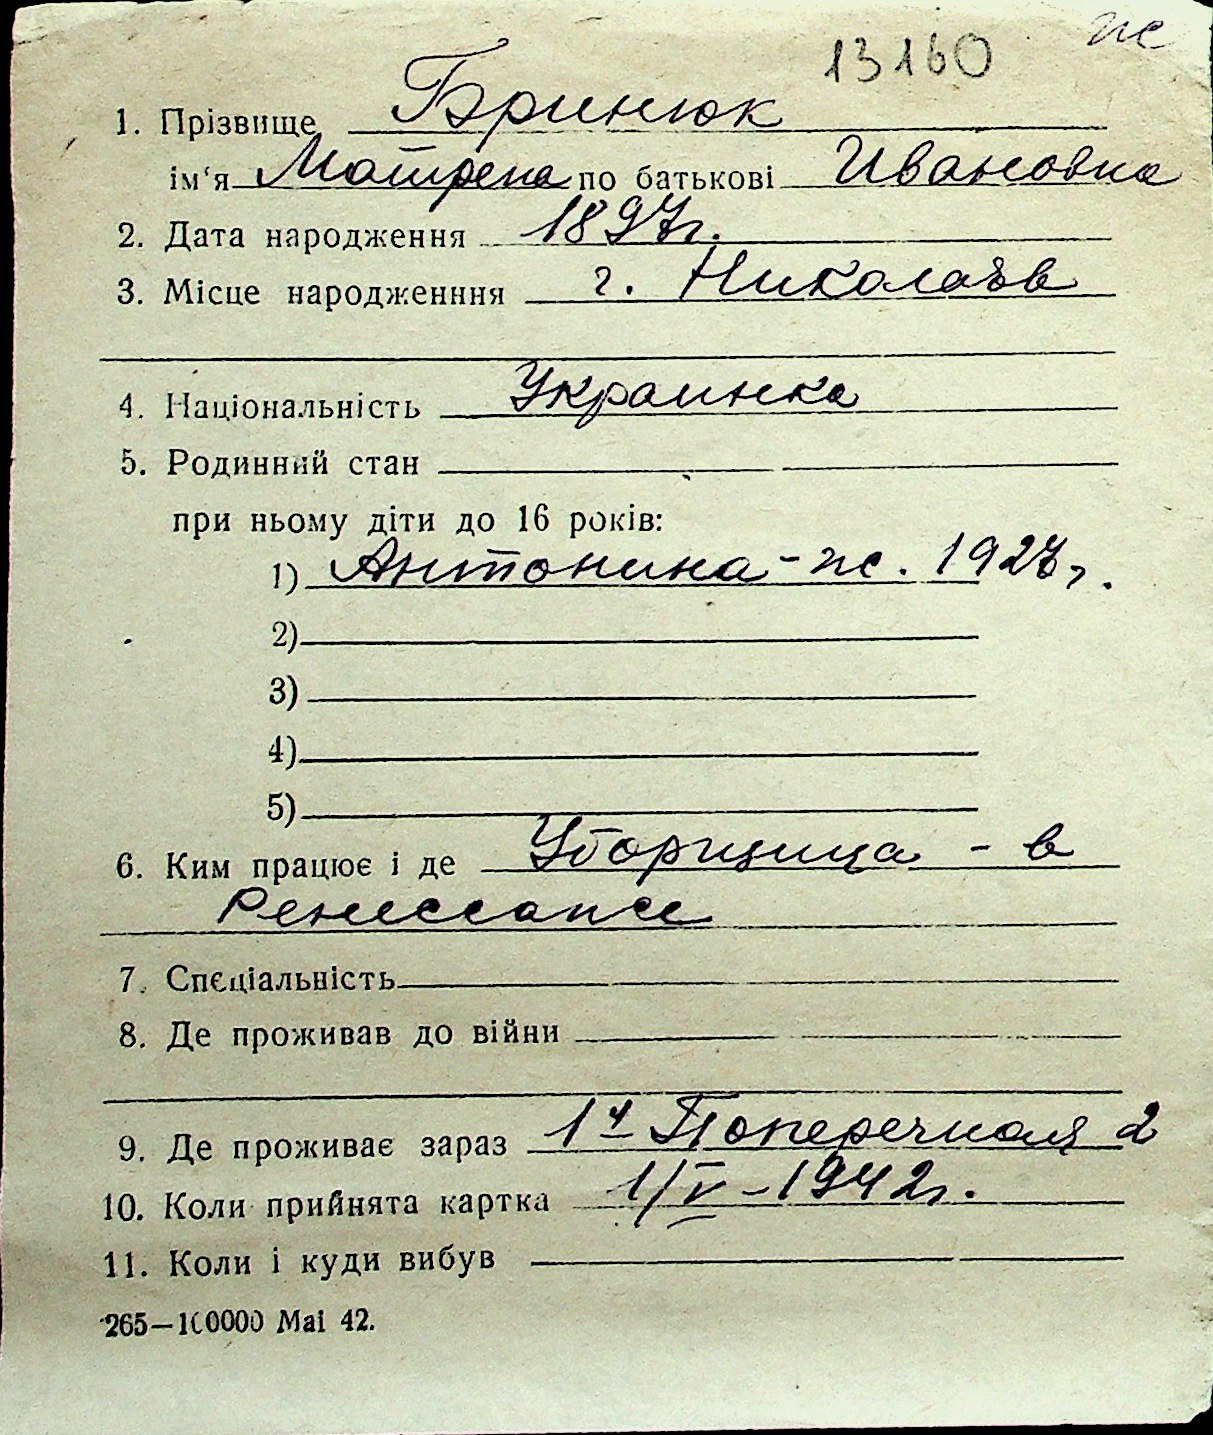 13160 ж
1. Прізвище Бринюк
ім‘я Матрена по батькові Ивановна
2. Дата народження 1897г.
3. Місце народженння г. Николаев
4. Національність Украинка
5. Родинний стан
при ньому діти до 16 років:
1) Антонина - ж. 1927г.
2)
3)
4)
5)
6. Ким працює і де Уборщица - в
Ренессансе
7. Спєціальність
8. Де проживав до війни
9. Де проживає зараз 1я Поперечная 2
10. Коли прийнята картка 1/V - 1942г.
11. Коли і куди вибув
265—100000 Mai 42.